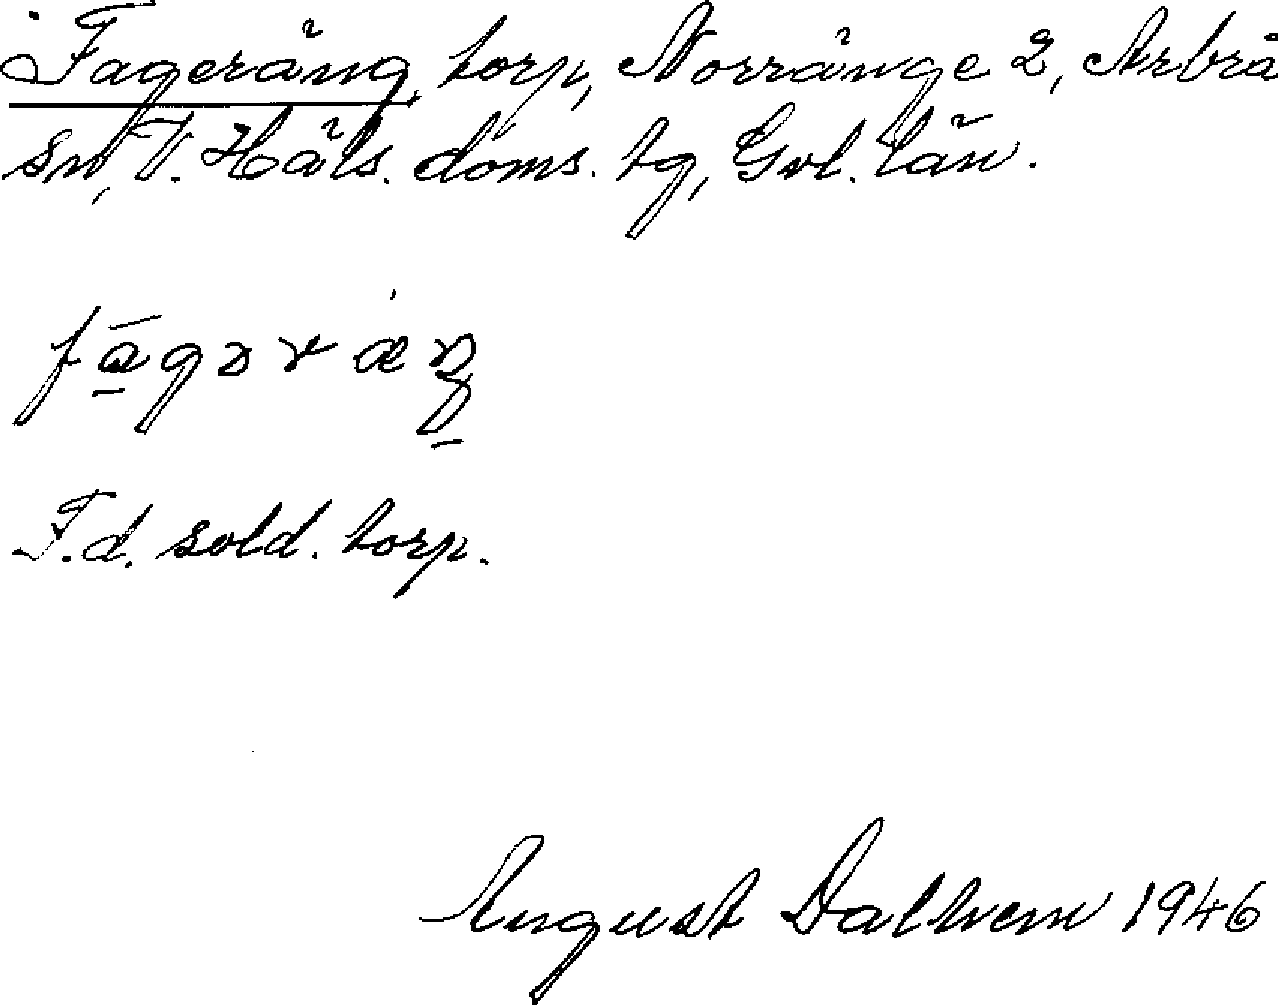 Fageräng, torp, Norränge 2, Arbrå
sn, V. Häls. doms. tg, Gvl. län.
fāgəræŋ
F.d. sold. torp.
August Dalhem 1946